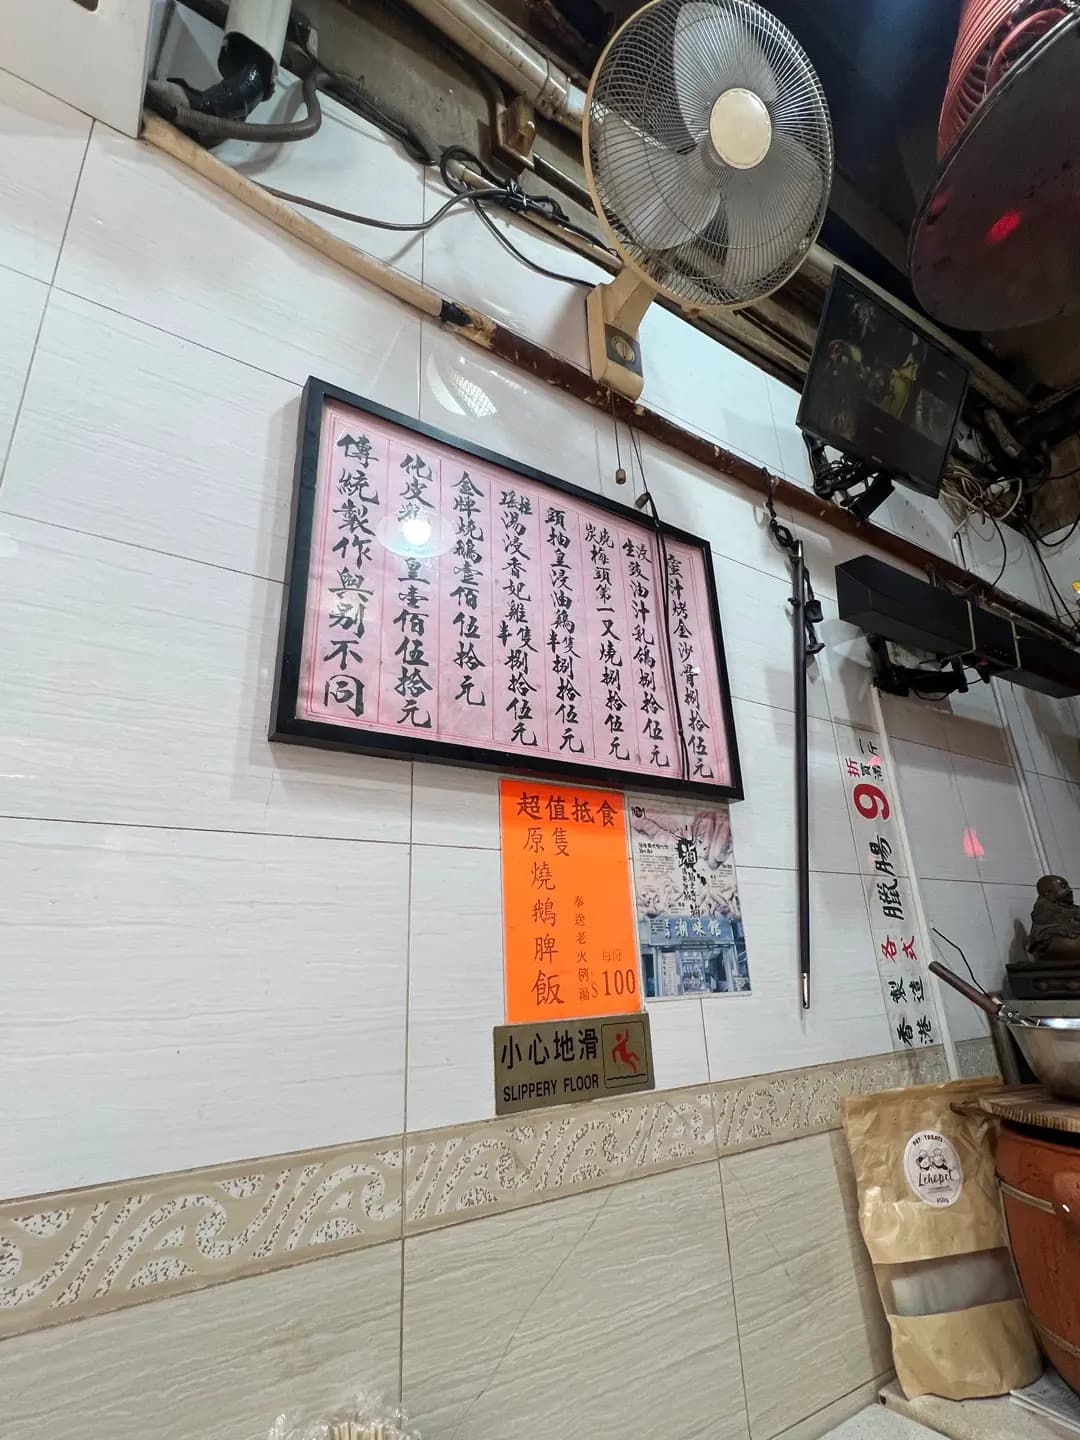 蜜汁烤金沙骨捌拾伍元
生浸豉油汁乳鴿捌拾伍元
炭燒梅頭第一叉燒捌拾伍元
頭抽皇浸油鷄半隻捌拾伍元
瑤柱湯浸香妃雞半隻捌拾伍元
金牌燒鵝壹佰伍拾元
化皮皇壹佰伍拾元
傳統製作與別不同
超值抵食
原隻燒鵝脾飯
奉送老火例湯
每份
$100
潮味館
小心地滑
SLIPPERY FLOOR
香港製造
各式臘腸
9折
一斤
買滿
PET TREATS
Lehopet